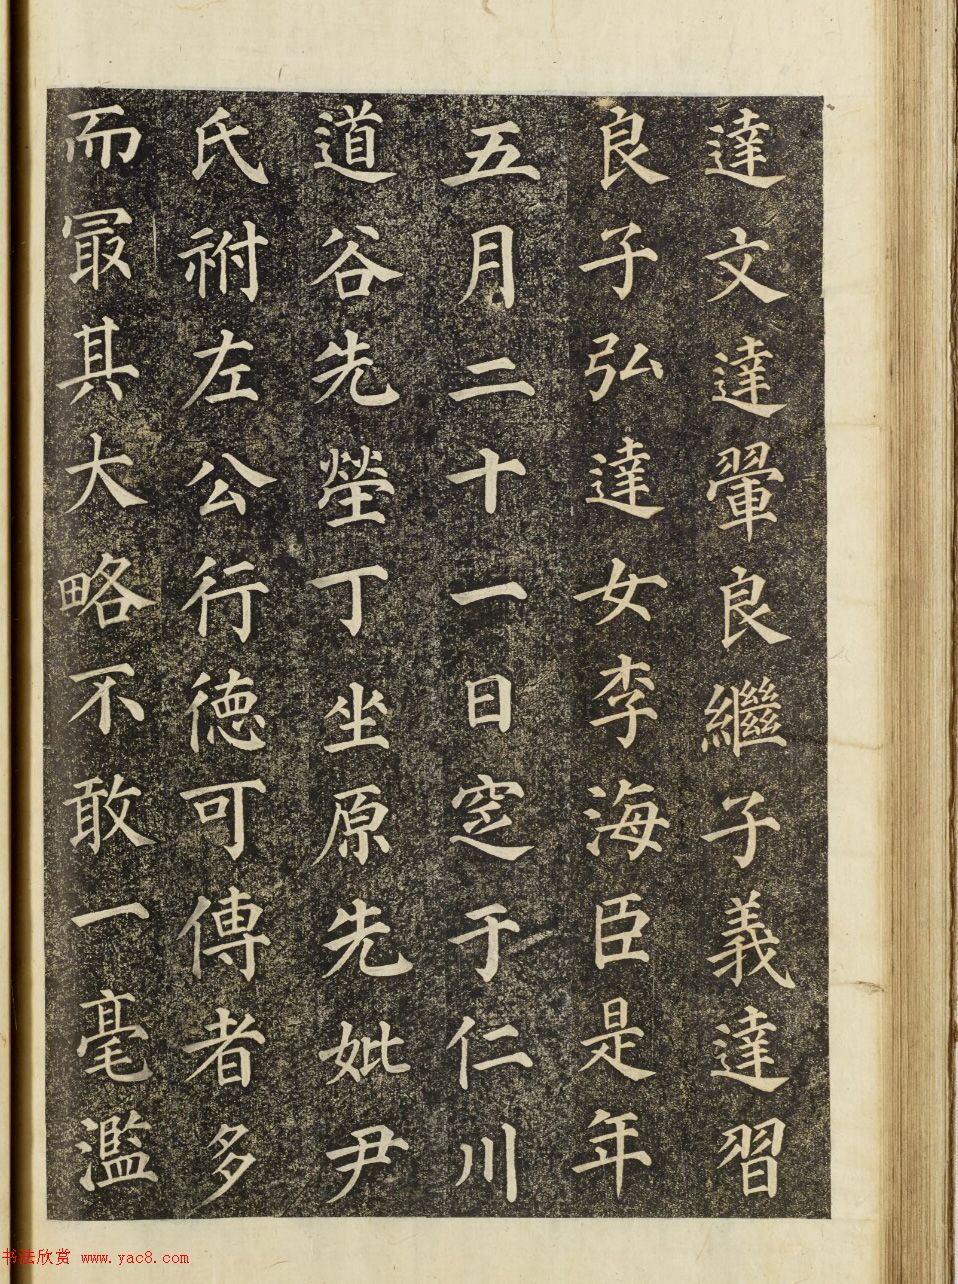 達文達翬良繼子義達習
良子弘達女李海臣是年
五月二十一日窆于仁川
道谷先塋丁坐原先妣尹
氏祔左公行徳可傳者多
而冣其大略不敢一毫濫
书法欣赏 www.yac8.com